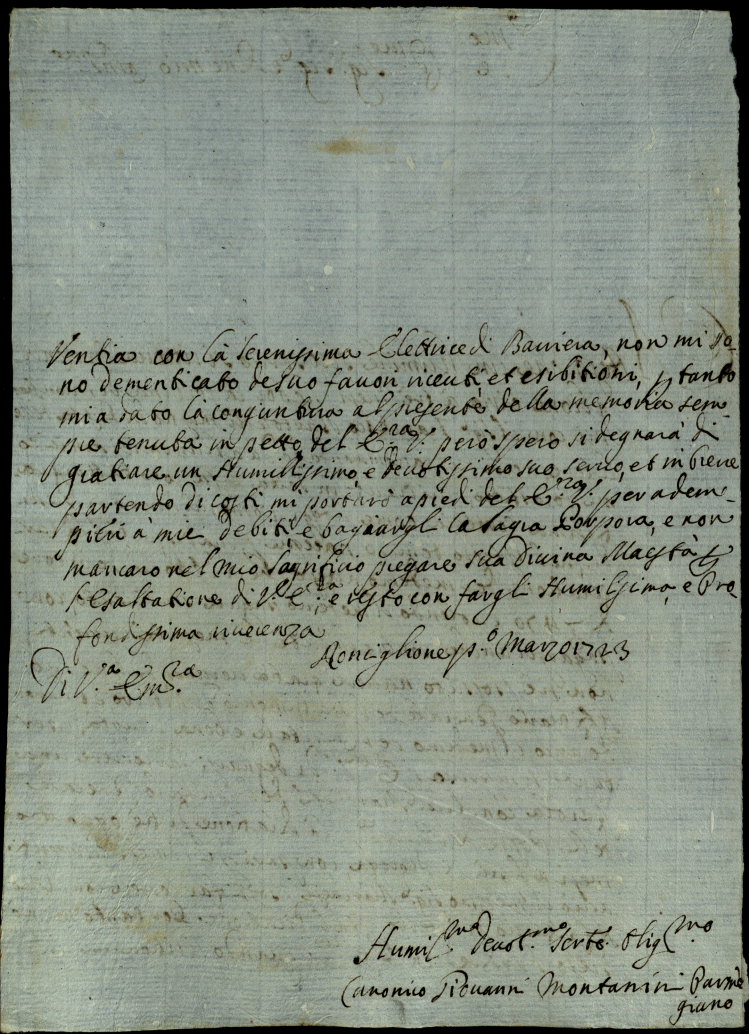 Venbia con la Serenissima Elettrice di Baviera, non mi so-
no dementicato de suo favori riceuti, et esibitioni, p tanto
mi a dato la congiuntura al presente della memoria sem
pre tenuta in petto del E.za V. però spero si degnarà di
gratiare un Humilissimo, e devotissimo suo servo, et in breve
partendo di costì mi portarò a piedi del E.za V. per adem-
pire à miei debiti, e bagiargli la Sagra Porpora, e non
mancarò nel mio Sagrificio pregare sua Divina Maestà p
l'esaltatione di V. E.za, e resto con fargli Humilissima, e Pro
fondissima riverenza
Ronciglione p.o Marzo 1723
Di V.a Em.za
Humil.mo Devot.mo Serv.e Oblig.mo
Canonico Giovanni Montanini Parme
giano